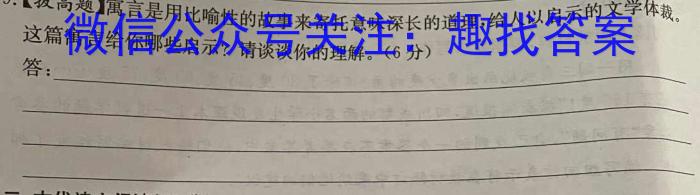 【拔高题】寓言是用比喻性的故事来寄托意味深长的道理,给人以启示的文学体裁。
这篇寓言给你哪些启示?请谈谈你的理解。(6分)
微信公众号关注:趣找答案
答: